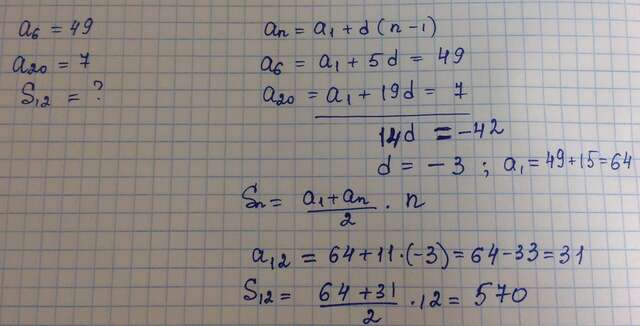 a₆ = 49
a₂₀ = 7
S₁₂ = ?
aₙ = a₁ + d (n - 1)
a₆ = a₁ + 5d = 49
a₂₀ = a₁ + 19d = 7
14d = -42
d = -3 ; a₁ = 49 + 15 = 64
Sₙ = (a₁ + aₙ)/2 · n
a₁₂ = 64 + 11 · (-3) = 64 - 33 = 31
S₁₂ = (64 + 31)/2 · 12 = 570